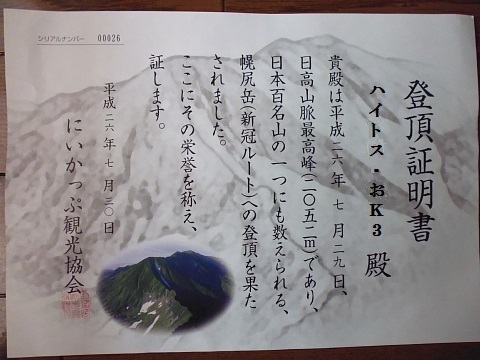 シリアルナンバー 00026
登頂証明書
ハイトス-おK3 殿
貴殿は平成二六年七月二九日、
日高山脈最高峰(二〇五二m)であり、
日本百名山の一つにも数えられる、
幌尻岳(新冠ルート)への登頂を果た
されました。
ここにその栄誉を称え、
証します。
平成二六年七月三〇日
にいかっぷ観光協会